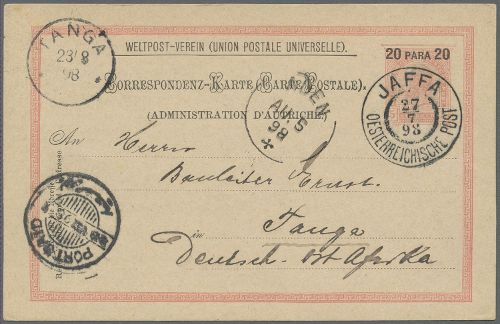 TANGA
23/8
98
WELTPOST-VEREIN (UNION POSTALE UNIVERSELLE).
20 PARA 20
CORRESPONDENZ-KARTE (CARTE POSTALE).
(ADMINISTRATION D'AUTRICHE)
ADEN
AU. 5
98
JAFFA
27
7
98
OESTERREICHISCHE POST
An Herrn
Bauleiter Ernst.
in Tanga
Deutsch-Ost Afrika
PORT-SAID